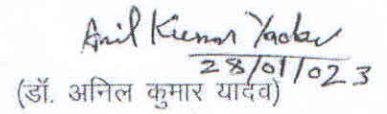 Anil Kumar Yadav
28/01/023
(डॉ. अनिल कुमार यादव)